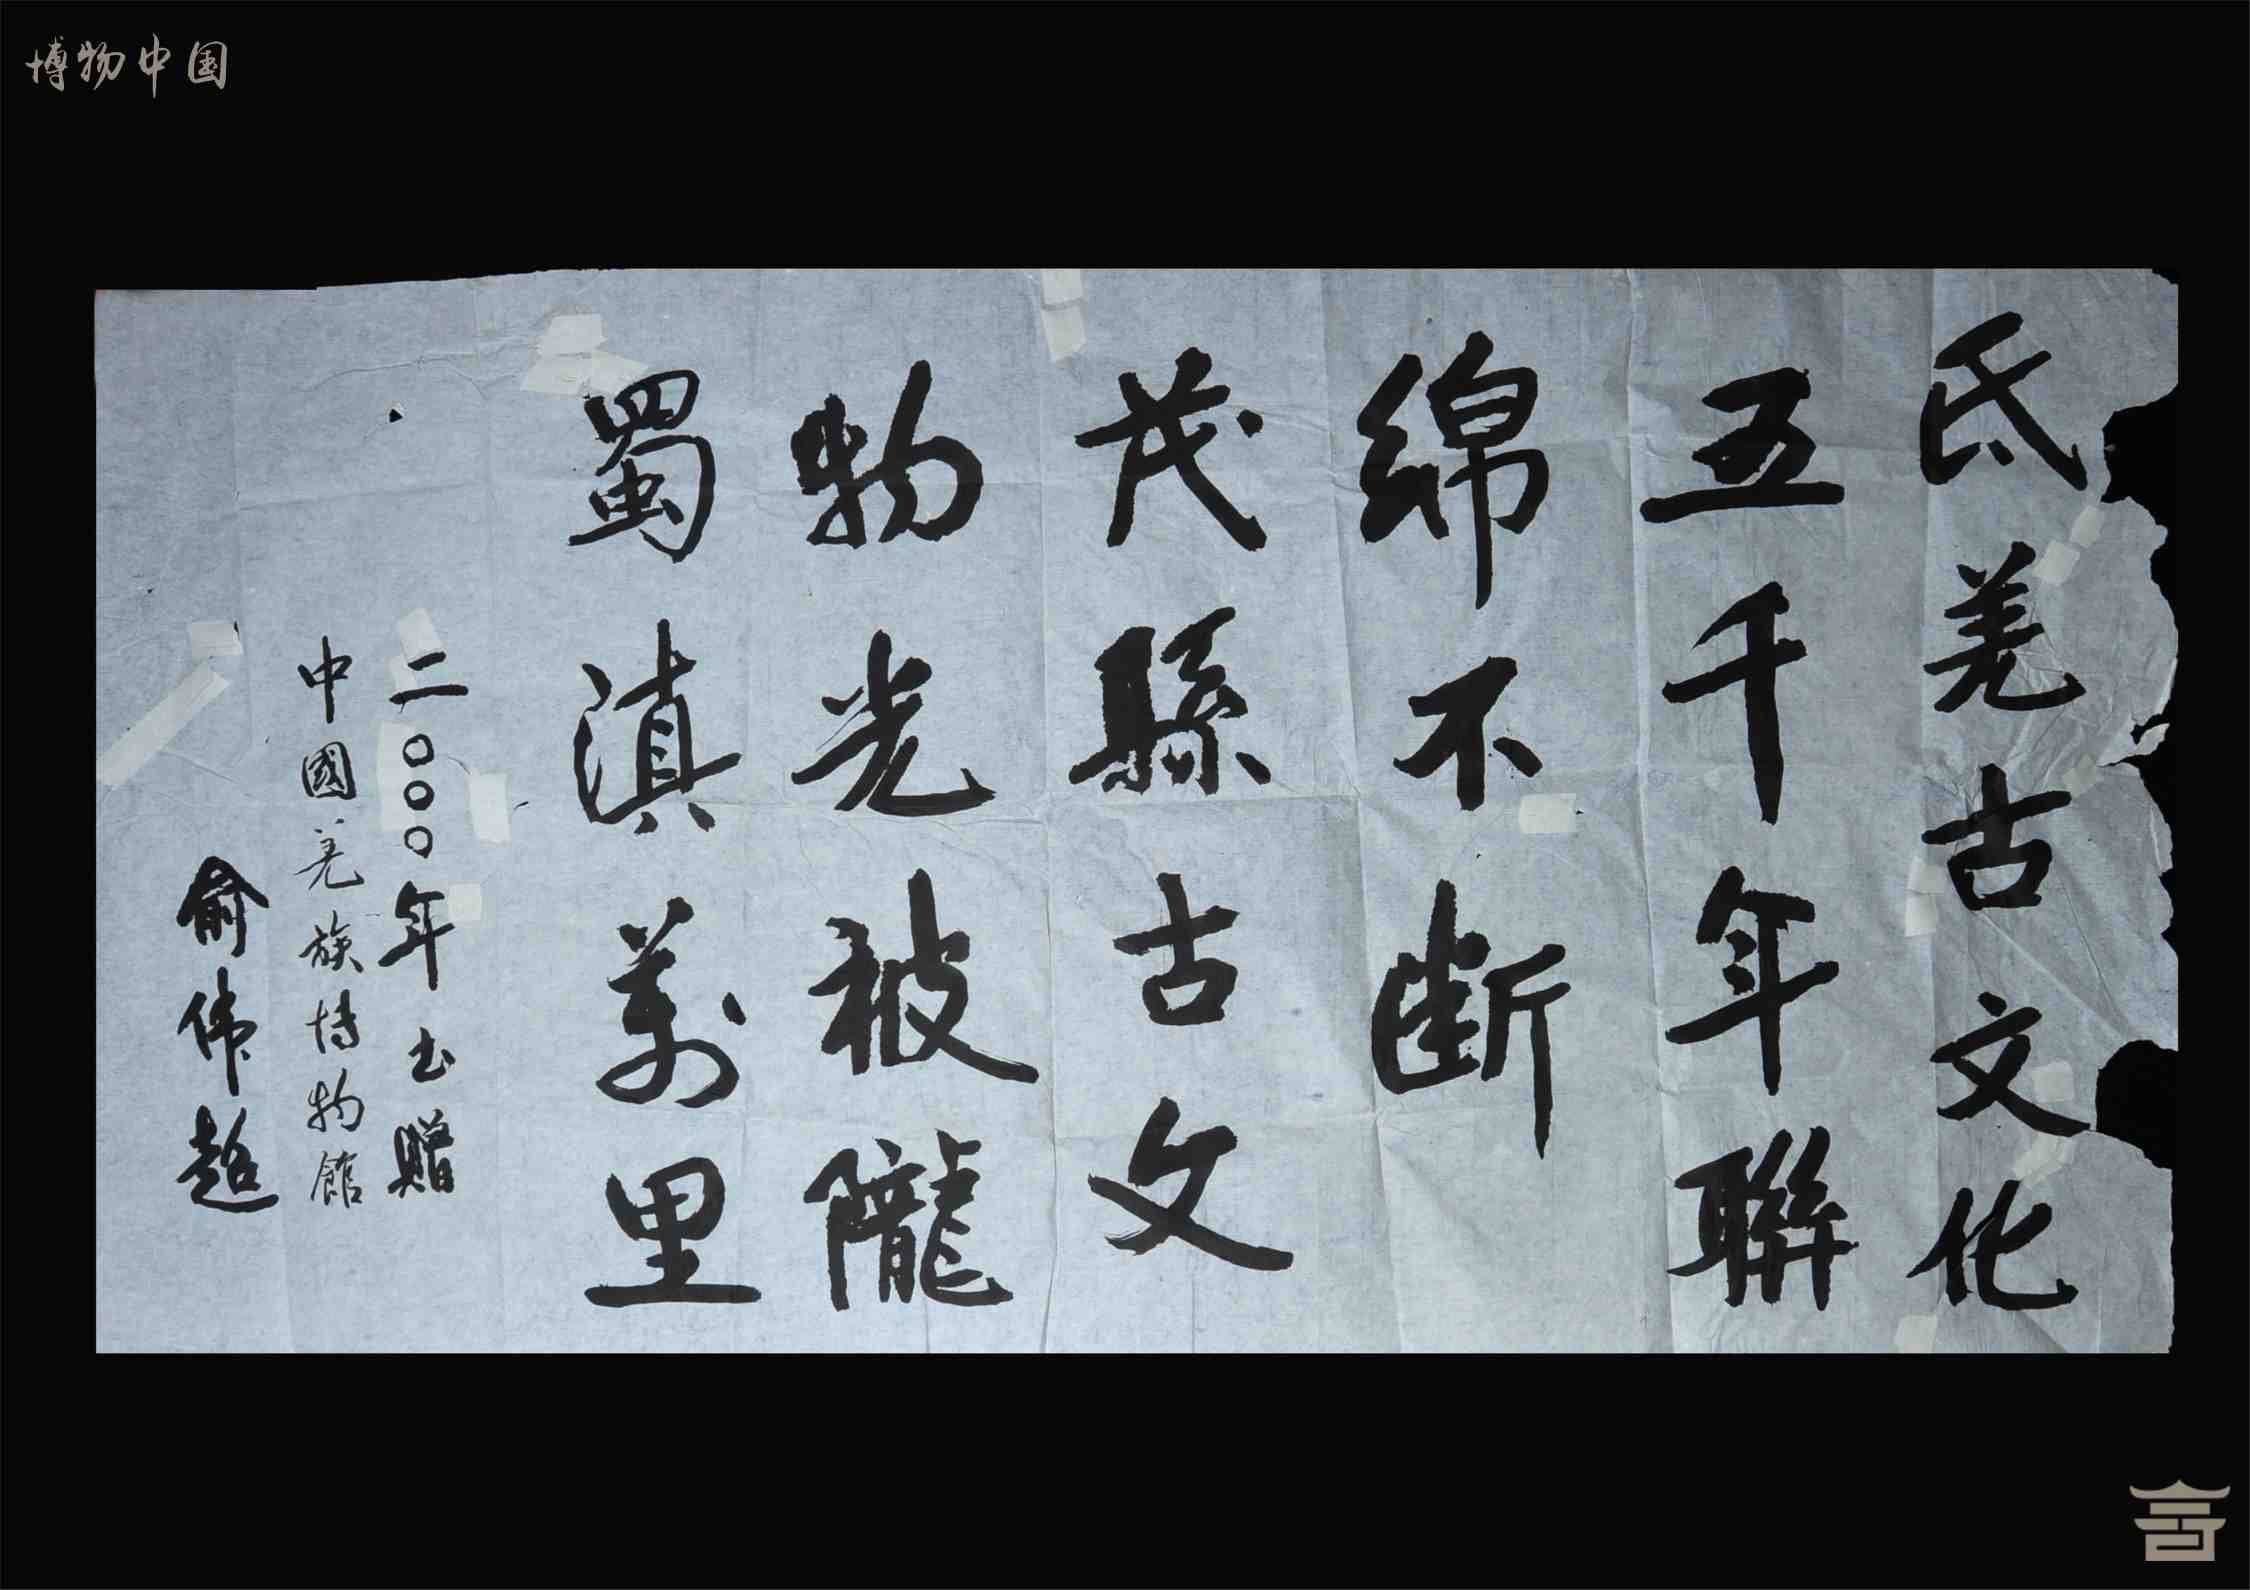 博物中国
氐羌古文化
五千年聯
綿不断
茂縣古文
物光被隴
蜀滇萬里
二〇〇〇年书赠
中國羌族博物館
俞伟超